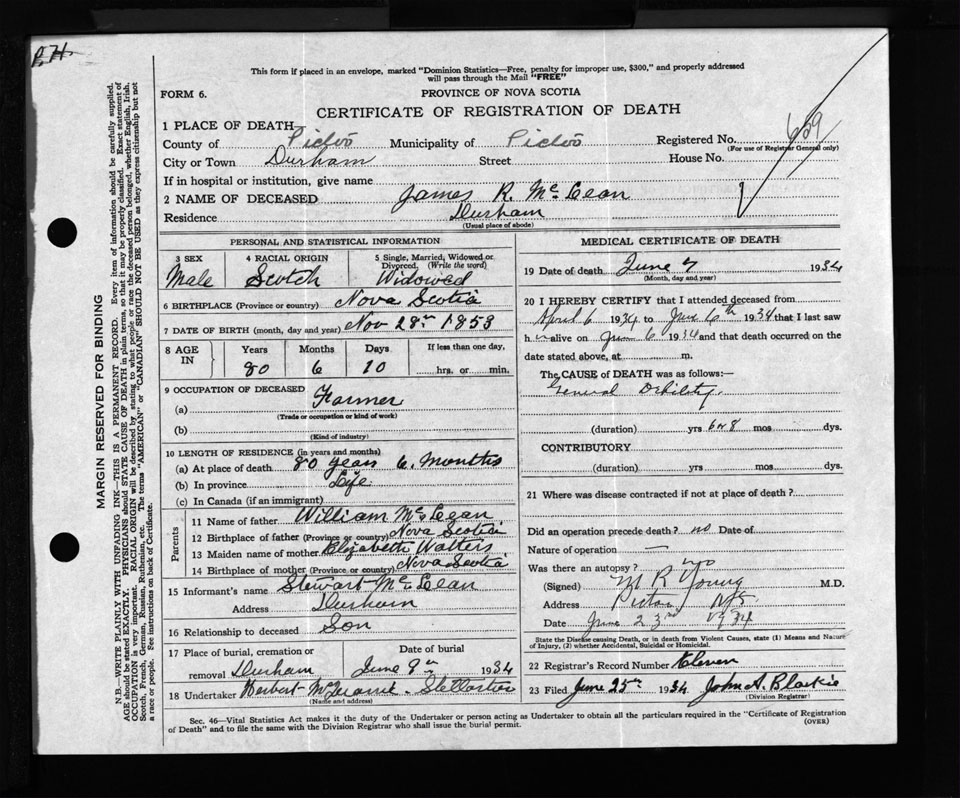 P.H.
This form if placed in an envelope, marked "Dominion Statistics—Free, penalty for improper use, $300," and properly addressed
will pass through the Mail "FREE"
FORM 6.
PROVINCE OF NOVA SCOTIA
CERTIFICATE OF REGISTRATION OF DEATH
1 PLACE OF DEATH
County of Pictou Municipality of Pictou Registered No. 659
(For use of Registrar General only)
City or Town Durham Street House No.
If in hospital or institution, give name
2 NAME OF DECEASED James R. McLean
Residence Durham
(Usual place of abode)
PERSONAL AND STATISTICAL INFORMATION
3 SEX Male
4 RACIAL ORIGIN Scotch
5 Single, Married, Widowed or Divorced. (Write the word) Widowed
6 BIRTHPLACE (Province or country) Nova Scotia
7 DATE OF BIRTH (month, day and year) Nov 28th 1853
8 AGE IN Years Months Days If less than one day,
80 6 10 hrs. or min.
9 OCCUPATION OF DECEASED
(a) Farmer
(Trade or occupation or kind of work)
(b)
(Kind of industry)
10 LENGTH OF RESIDENCE (in years and months)
(a) At place of death 80 years 6. Months
(b) In province Life
(c) In Canada (if an immigrant)
Parents
11 Name of father William McLean
12 Birthplace of father (Province or country) Nova Scotia
13 Maiden name of mother Elizabeth Watters
14 Birthplace of mother (Province or country) Nova Scotia
15 Informant's name Stewart McLean
Address Durham
16 Relationship to deceased Son
17 Place of burial, cremation or removal Durham
Date of burial June 9th 1934
18 Undertaker Herbert
(Name and address)
MEDICAL CERTIFICATE OF DEATH
19 Date of death June 7 1934
(Month, day and year)
20 I HEREBY CERTIFY that I attended deceased from
April 6 1934 to June 6th 1934 that I last saw
him alive on June 6 1934 and that death occurred on the
date stated above, at m.
The CAUSE of DEATH was as follows:—
General Debility
(duration) yrs 6 or 8 mos dys.
CONTRIBUTORY
(duration) yrs mos dys.
21 Where was disease contracted if not at place of death?
Did an operation precede death? no Date of
Nature of operation —
Was there an autopsy? no
(Signed) M R Young M.D.
Address Pictou N.S.
Date June 23rd 1934
State the Disease causing Death, or in death from Violent Causes, state (1) Means and Nature
of Injury, (2) whether Accidental, Suicidal or Homicidal.
22 Registrar's Record Number Eleven
23 Filed June 25th 1934 John A. Blaikie
(Division Registrar)
Sec. 46—Vital Statistics Act makes it the duty of the Undertaker or person acting as Undertaker to obtain all the particulars required in the "Certificate of Registration
of Death" and to file the same with the Division Registrar who shall issue the burial permit.
(OVER)
MARGIN RESERVED FOR BINDING
N.B.—WRITE PLAINLY WITH UNFADING INK—THIS IS A PERMANENT RECORD. Every item of information should be carefully supplied.
AGE should be stated EXACTLY. PHYSICIANS should STATE CAUSE OF DEATH in plain terms, so that it may be properly classified. Exact statement of
OCCUPATION is very important. RACIAL ORIGIN will be described by stating to what people or race the deceased person belonged, whether English, Irish,
Scotch, French, German, Russian, Ruthenian, etc. The terms "AMERICAN" or "CANADIAN" SHOULD NOT BE USED as they express citizenship but not
a race or people. See instructions on back of Certificate.